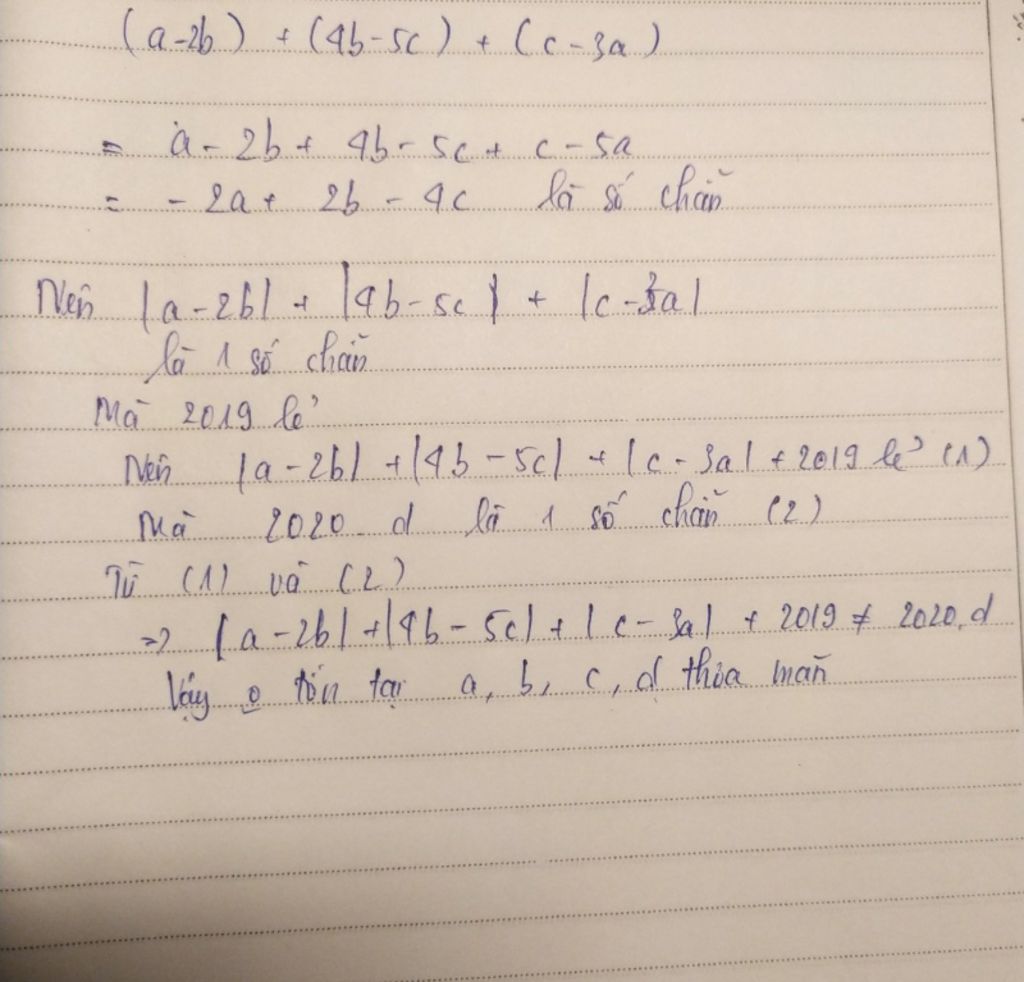 (a-2b) + (4b-5c) + (c-3a)
= a - 2b + 4b - 5c + c - 5a
= - 2a + 2b - 4c là số chẵn
Nên |a-2b| + |4b-5c| + |c-3a|
là 1 số chẵn
Mà 2019 lẻ
Nên |a-2b| + |4b-5c| + |c-3a| + 2019 lẻ (1)
Mà 2020.d là 1 số chẵn (2)
Từ (1) và (2)
=> |a-2b| + |4b-5c| + |c-3a| + 2019 ≠ 2020.d
Vậy o tồn tại a, b, c, d thỏa mãn